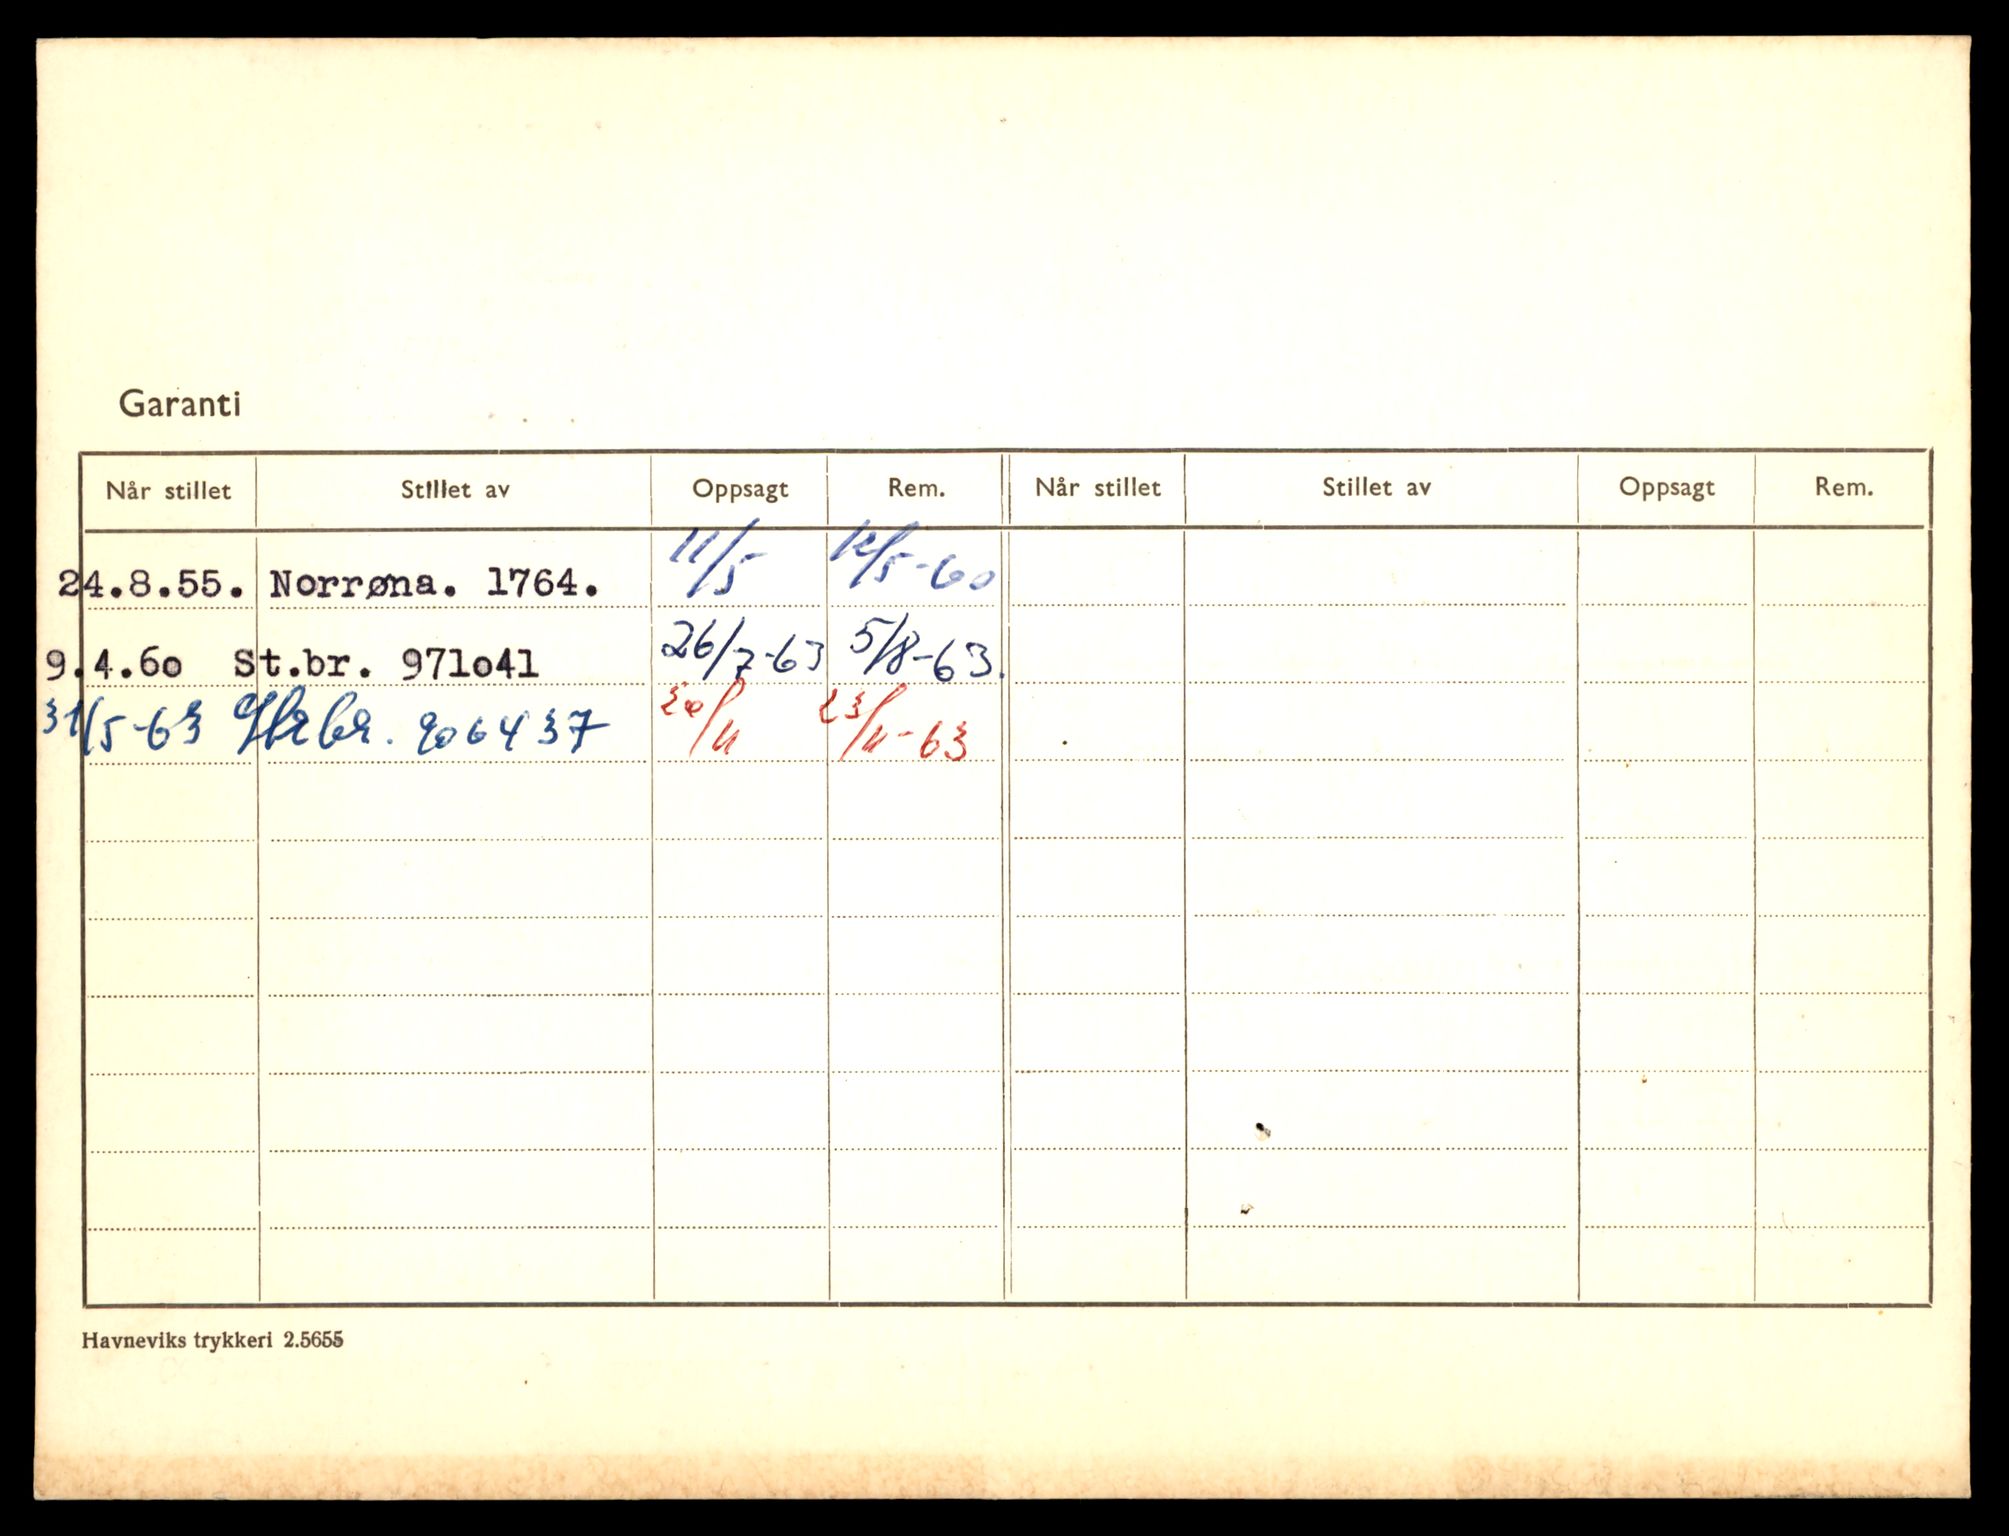 Garanti
Når stillet Stillet av Oppsagt Rem. Når stillet Stillet av Oppsagt Rem.
24.8.55. Norrøna. 1764. 11/5 12/5-60
9.4.60 St.br. 971o41 26/7-63 5/8-63.
31/5-63 906437 20/11 23/11-63
Havneviks trykkeri 2.5655